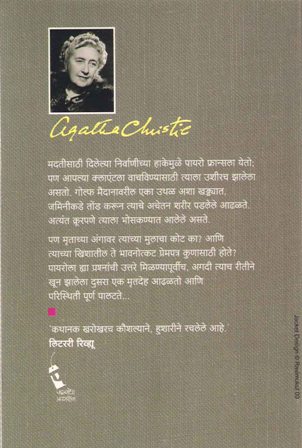 Agatha Christie
मदतीसाठी दिलेल्या निर्वाणीच्या हाकेमुळे पायरो फ्रान्सला येतो;
पण आपल्या क्लाएंटला वाचविण्यासाठी त्याला उशीरच झालेला
असतो. गोल्फ मैदानावरील एका उथळ अशा खड्ड्यात,
जमिनीकडे तोंड करून त्याचे अचेतन शरीर पडलेले आढळते.
अत्यंत क्रूरपणे त्याला भोसकण्यात आलेले असते.
पण मृताच्या अंगावर त्याच्या मुलाचा कोट का? आणि
त्याच्या खिशातील ते भावनोत्कट प्रेमपत्र कुणासाठी होते?
पायरोला ह्या प्रश्नांची उत्तरे मिळण्यापूर्वीच, अगदी त्याच रीतीने
खून झालेला दुसरा एक मृतदेह आढळतो आणि
परिस्थिती पूर्ण पालटते...
'कथानक खरोखरच कौशल्याने, हुशारीने रचलेले आहे.'
लिटररी रिव्ह्यू
पद्मगंधा
प्रकाशन